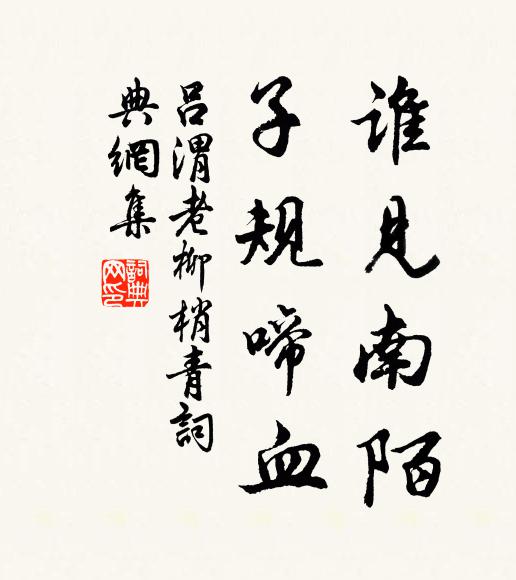 谁見南陌
子規啼血
吕渭老柳梢青詞
典網集
詞典網印